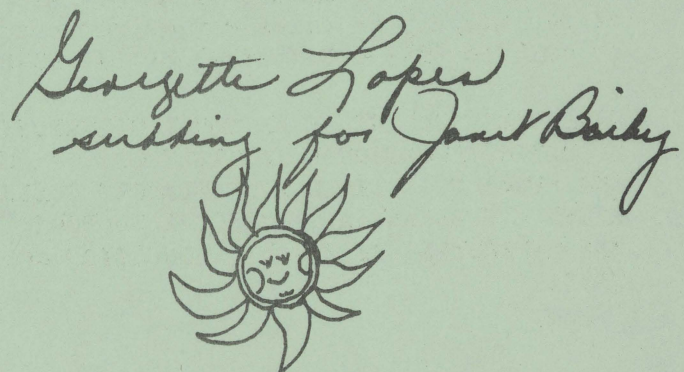 Georgette Lopes
subbing for Janet Bailey